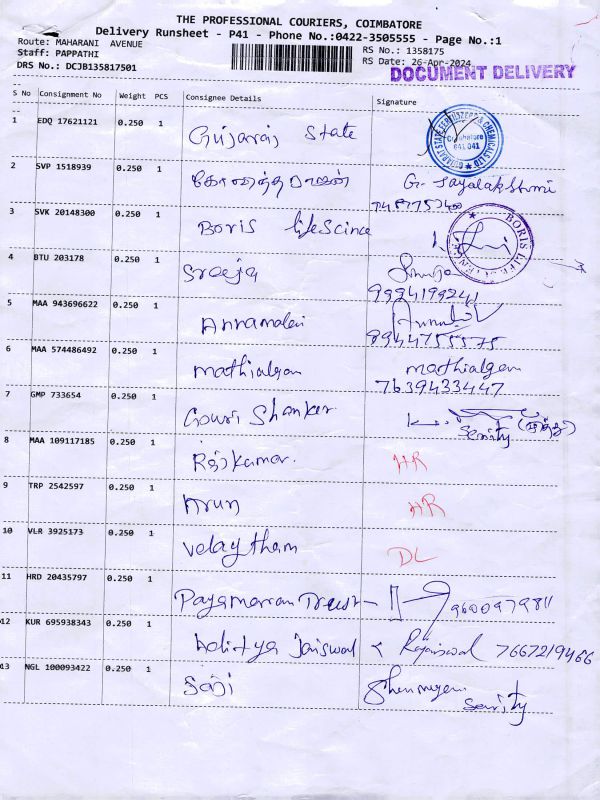 THE PROFESSIONAL COURIERS, COIMBATORE
Delivery Runsheet - P41 - Phone No.:0422-3505555 - Page No.:1
Route: MAHARANI AVENUE RS No.: 1358175
Staff: PAPPATHI RS Date: 26-Apr-2024
DRS No.: DCJB135817501
DOCUMENT DELIVERY
S No Consignment No Weight PCS Consignee Details Signature
1 EDQ 17621121 0.250 1 Gujarat State
Coimbatore 641 041
2 SVP 1518939 0.250 1 கோவிந்தராஜன் G. Jayalakshmi
3 SVK 20148300 0.250 1 Boris lifeScince
BORIS LIFE
4 BTU 203178 0.250 1 Sreeja
9994199241
5 MAA 943696622 0.250 1 Annamalai
9944755575
6 MAA 574486492 0.250 1 mathialgan mathialgan
7639433447
7 GMP 733654 0.250 1 Gouri Shanker
Serity
8 MAA 109117185 0.250 1 Rajkumar. HR
9 TRP 2542597 0.250 1 Arun HR
10 VLR 3925173 0.250 1 Velaytham DL
11 HRD 20435797 0.250 1 Payamarran Trust 9600979811
12 KUR 695938343 0.250 1 Aditya Jaiswal Rajaiswal 7667219466
13 NGL 100093422 0.250 1 Saji Shenmugam
Serity